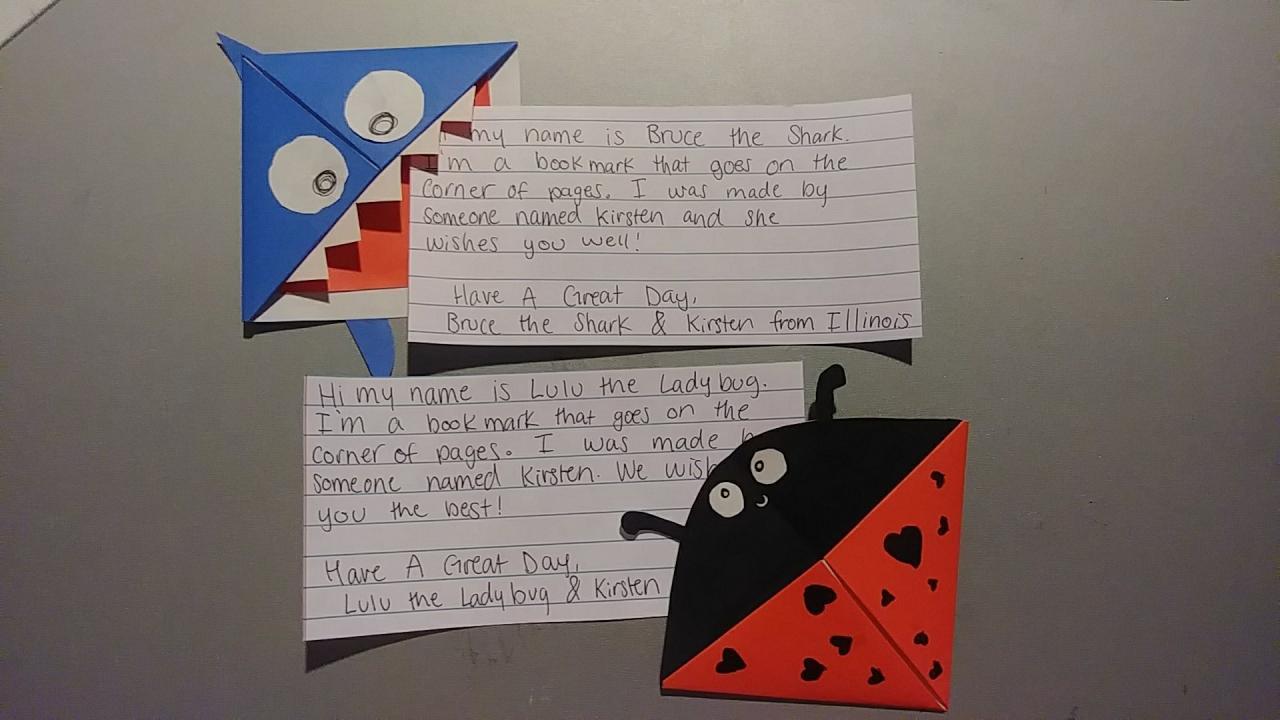 my name is Bruce the Shark.
I'm a bookmark that goes on the
corner of pages. I was made by
someone named Kirsten and she
wishes you well!
Have A Great Day,
Bruce the Shark & Kirsten from Illinois
Hi my name is Lulu the Ladybug.
I'm a bookmark that goes on the
corner of pages. I was made
someone named Kirsten. We wish
you the best!
Have A Great Day,
Lulu the Ladybug & Kirsten